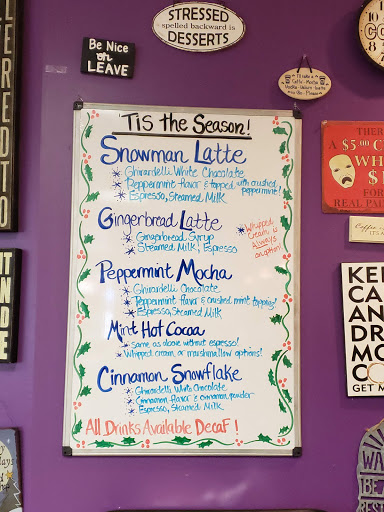 STRESSED
spelled backward is
DESSERTS
Be Nice
or
LEAVE
'Tis the Season!
Snowman Latte
* Ghirardelli White Chocolate
* Peppermint flavor & topped with crushed peppermint!
* Espresso, Steamed Milk
Gingerbread Latte
* Gingerbread Syrup
* Steamed Milk, Espresso
* Whipped
Cream is
Always
an option!
Peppermint Mocha
* Ghirardelli Chocolate
* Peppermint flavor & crushed mint topping!
* Espresso, Steamed Milk
Mint Hot Cocoa
* same as above without espresso!
* Whipped cream or marshmallow options!
Cinnamon Snowflake
* Ghirardelli White Chocolate
* Cinnamon flavor & cinnamon powder
* Espresso, Steamed Milk
All Drinks Available Decaf!
THER
A $5.00 C
WH
$1
FOR
REAL PA
Coffee
KEE
CA
AND
DR
MO
CO
GET M
WA
BE